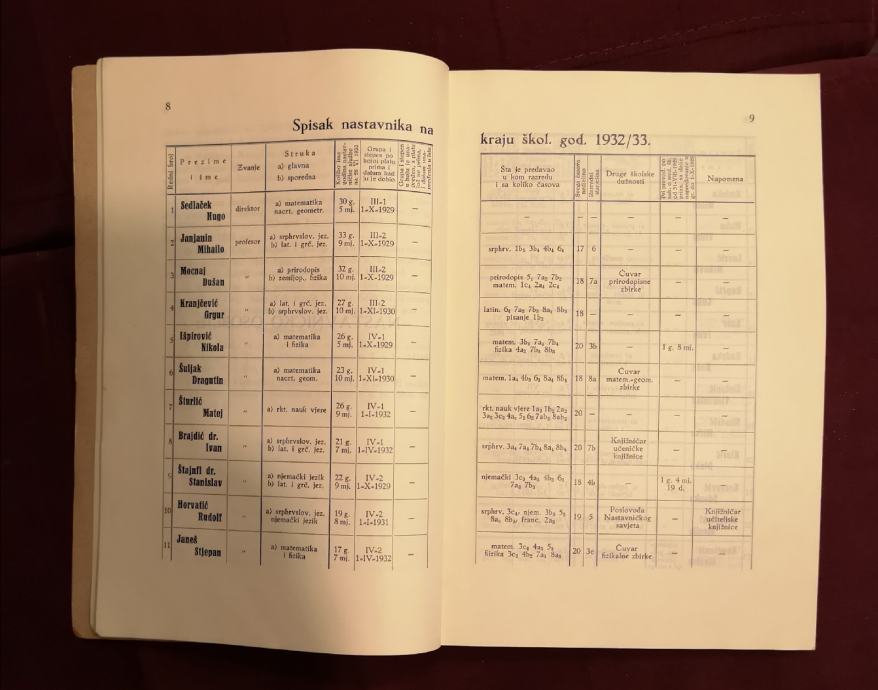 8
Spisak nastavnika na
Redni broj
Prezime
i ime
Zvanje
Struka
a) glavna
b) sporedna
Grupa i
stepen po
kojoj platu
prima i
datum kad
ju je dobio
1
Sedlaček
Hugo
direktor
a) matematika
nacrt. geometr.
30 g.
5 mj.
III-1
1-X-1929
2
Janjanin
Mihailo
profesor
a) srphrvslov. jez.
b) lat. i grč. jez.
33 g.
9 mj.
III-2
1-X-1929
—
3
Mocnaj
Dušan
„
a) prirodopis
b) zemljop., fizika
32 g.
10 mj.
III-2
1-X-1929
—
4
Kranjčević
Grgur
„
a) lat. i grč. jez.
b) srphrvslov. jez.
27 g.
10 mj.
III-2
1-XI-1930
—
5
Išpirović
Nikola
„
a) matematika
i fizika
26 g.
5 mj.
IV-1
1-X-1929
—
6
Šuljak
Dragutin
„
a) matematika
nacrt. geom.
23 g.
10 mj.
IV-1
1-XI-1930
—
7
Šturlić
Matej
„
a) rkt. nauk vjere
26 g.
9 mj.
IV-1
1-I-1932
—
8
Brajdić dr.
Ivan
„
a) srphrvslov. jez.
b) lat. i grč. jez.
21 g.
7 mj.
IV-1
1-IV-1932
—
9
Štajnfl dr.
Stanislav
„
a) njemački jezik
b) lat. i grč. jez.
22 g.
9 mj.
IV-2
1-X-1929
—
10
Horvatić
Rudolf
„
a) srphrvslov. jez.
njemački jezik
19 g.
8 mj.
IV-2
1-I-1931
—
11
Janeš
Stjepan
„
a) matematika
i fizika
17 g.
7 mj.
IV-2
1-IV-1932
—
9
kraju škol. god. 1932/33.
Šta je predavao
u kom razredu
i sa koliko časova
Druge školske
dužnosti
Napomena
— — — — — —
srphrv. 1b₅ 3b₄ 4b₄ 6₄ 17 6 — — —
prirodopis 5₂ 7a₂ 7b₂
matem. 1c₄ 2a₄ 2c₄
18 7a
Čuvar
prirodopisne
zbirke
— —
latin. 6₄ 7a₃ 7b₃ 8a₃ 8b₃
pisanje 1b₂
18 — — — —
matem. 3b₃ 7a₃ 7b₄
fizika 4a₂ 7b₃ 8b₃
20 3b — 1 g. 8 mj. —
matem. 1a₄ 4b₃ 6₃ 8a₄ 8b₄
18 8a
Čuvar
matem.-geom.
zbirke
— —
rkt. nauk vjere 1a₂ 1b₂ 2a₂
20 — — — —
srphrv. 3a₄ 7a₄ 7b₄ 8a₄ 8b₄
20 7b
Knjižničar
učeničke
knjižnice
— —
njemački 3c₃ 4a₃ 4b₃ 6₃
7a₃ 7b₃
18 4b —
1 g. 4 mj.
19 d.
—
srphrv. 3c₄, njem. 3b₃ 5₃
8a₃ 8b₃, franc. 2a₃
19 5
Poslovođa
Nastavničkog
savjeta
—
Knjižničar
učiteljske
knjižnice
matem. 3c₃ 4a₃ 5₃
fizika 3c₂ 4b₂ 7a₃ 8a₃
20 3c
Čuvar
fizikalne zbirke
— —